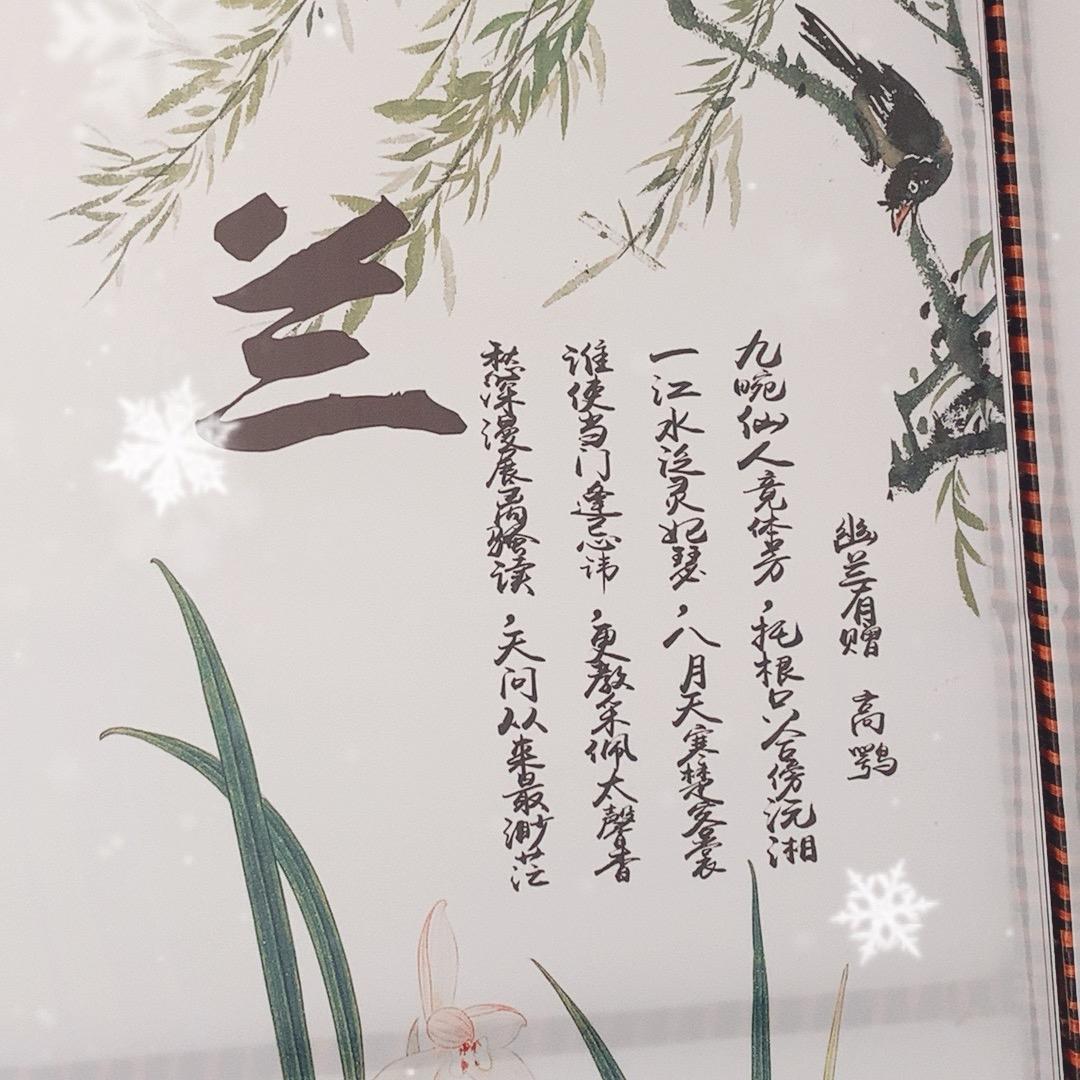 兰
幽兰有赠 高鹗
九畹仙人竟体芳，托根只合傍沅湘
一江水泛灵妃瑟，八月天寒楚客裳
谁使当门逢忌讳，更教采佩太馨香
愁深漫展离骚读，天问从来最渺茫